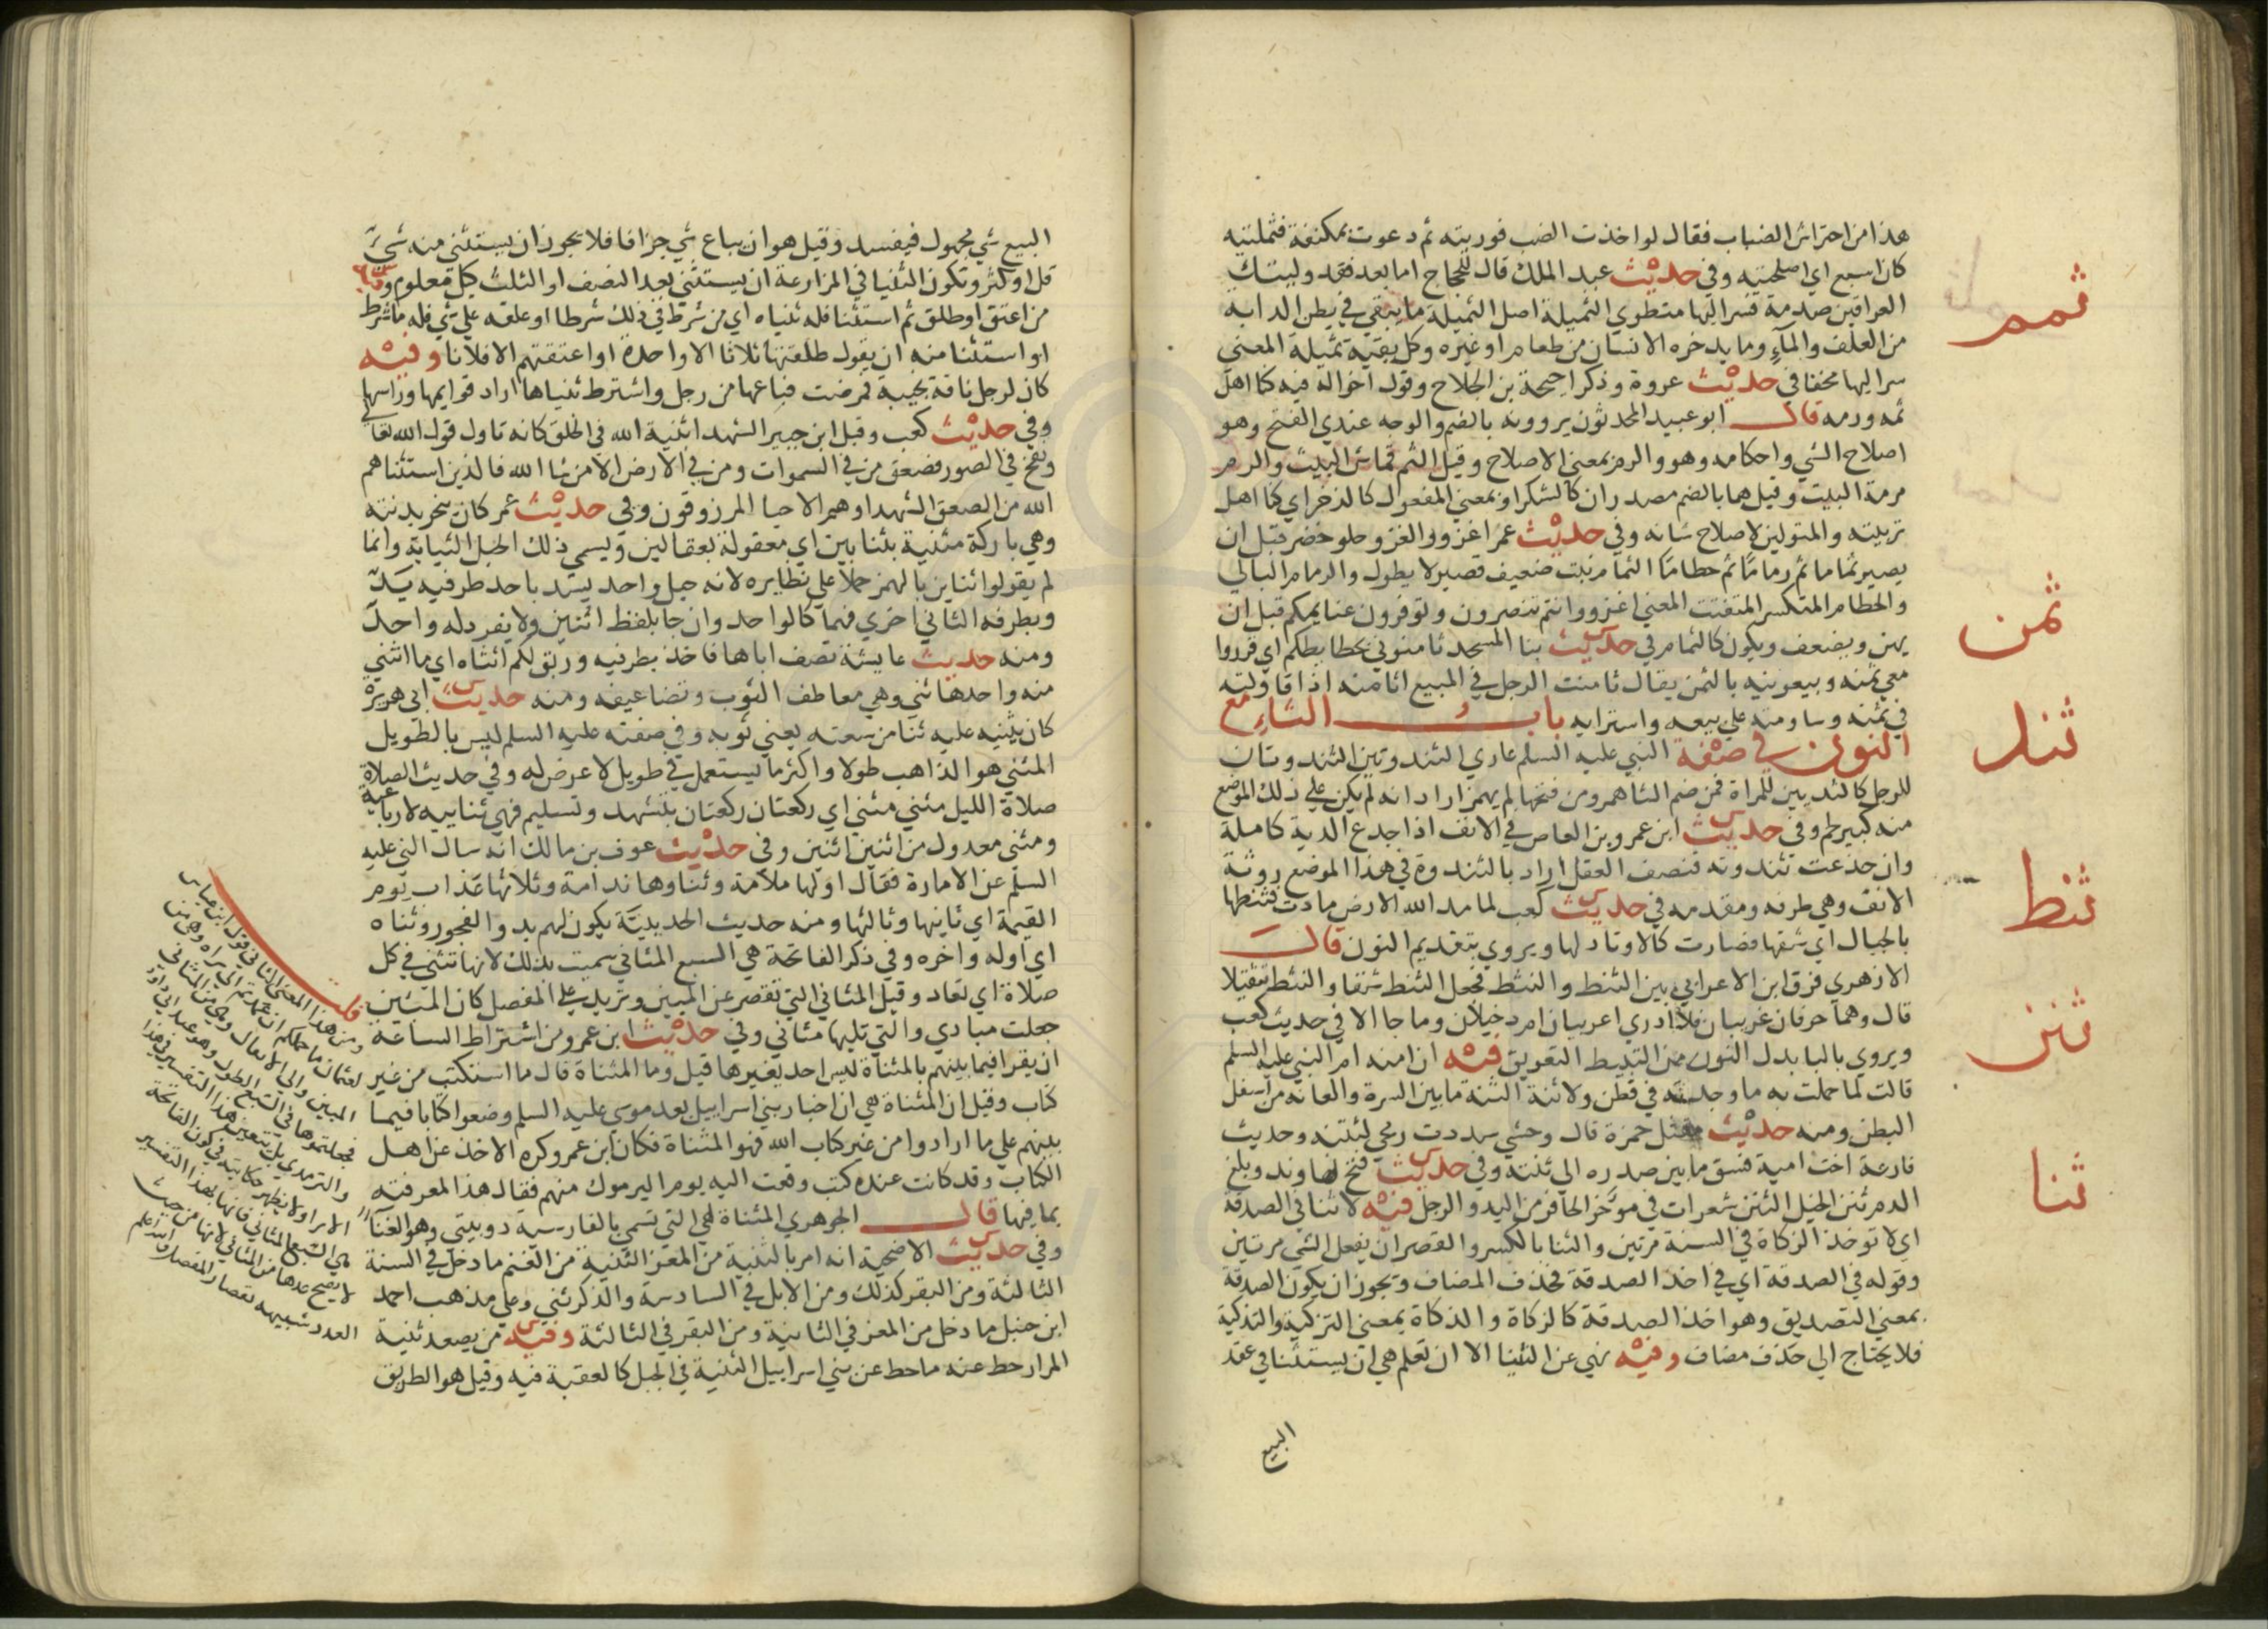 هذا من احتراش الضباب فقال لو اخذت الضب فوريته ثم دعوت بمكنفة فثملته
كان اسبع اي اصلحته وفي حديث عبد الملك قال للحجاج اما بعد فقد وليتك
العراقين صدمة فسر اليها منطوي الثميلة اصل الثميلة ما يبقي في بطن الدابه
من العلف والمآء وما يدخره الانسان من طعام او غيره وكل بقية ثميلة المعني
سر اليها مخفا في حديث عروة وذكر احيحة بن الجلاح وقول اخواله فيه كنا اهل
ثمه ورمه قال ابو عبيد المحدثون يروونه بالضم والوجه عندي الفتح وهو
اصلاح الشي واحكامه وهو والرم بمعني الاصلاح وقيل الثم قماش البيت والرم
مرمة البيت وقيل هما بالضم مصدران كالشكر او بمعني المفعول كالذخر اي كنا اهل
تربيته والمتولين لاصلاح شانه وفي حديث عمر اغزوا والغزو حلو خضر قبل ان
يصير ثماما ثم رماما ثم حطاما الثمام نبت ضعيف قصير لا يطول والرمام البالي
والحطام المتكسر المتفتت المعني اغزوا وانتم تنصرون وتوفرون غنايمكم قبل ان
يهن ويضعف ويكون كالثمام في حديث بنا المسجد ثامنوني بحايطكم اي قرروا
معي ثمنه وبيعونيه بالثمن يقال ثامنت الرجل في المبيع اثامنه اذا قاولته
في ثمنه وساومته علي بيعه واشترايه باب الثاء مع
النون في صفة النبي عليه السلم عاري الثندوتين الثندوتان
للرجل كالثديين للمراة فمن ضم الثا همز ومن فتحها لم يهمز اراد انه لم يكن علي ذلك الموضع
منه كبير لحم وفي حديث ابن عمرو بن العاص في الانف اذا جدع الدية كاملة
وان جدعت ثندوته فنصف العقل اراد بالثندوة في هذا الموضع روثة
الانف وهي طرفه ومقدمه في حديث كعب لما مد الله الارض مادت فثنطها
بالجبال اي شقها فصارت كالاوتاد لها ويروي بتقديم النون قال
الازهري فرق ابن الاعرابي بين الثنط والنثط فجعل الثنط شقا والنثط تثقيلا
قال وهما حرفان غريبان فلا ادري اعربيان ام دخيلان وما جا الا في حديث كعب
ويروي بالبا بدل النون من التثبيط التعويق فيه ان امنه ام النبي عليه السلم
قالت لما حملت به ما وجدته في قطن ولا ثنة الثنة ما بين السرة والعانه من اسفل
البطن ومنه حديث مقتل حمزة قال وحشي سددت رمحي لثنته وحديث
فارعة اخت امية فشق ما بين صدره الي ثنته وفي حديث فتح نهاوند وبلغ
الدم ثنن الخيل الثنن شعرات في مؤخر الحافر من اليد والرجل فيه لا ثنا في الصدقة
اي لا توخذ الزكاة في السنة مرتين والثنا بالكسر والقصر ان يفعل الشي مرتين
وقوله في الصدقة اي في اخذ الصدقة فحذف المضاف ويجوز ان يكون الصدقة
بمعني التصديق وهو اخذ الصدقة كالزكاة والذكاة بمعني التزكية والتذكية
فلا يحتاج الي حذف مضاف وفيه نهي عن الثنيا الا ان تعلم هي ان يستثنا في عقد
البيع
ثمم
ثمن
ثند
ثنط
ثنن
ثنا
البيع شي مجهول فيفسد وقيل هو ان يباع شي جزافا فلا يجوز ان يستثني منه شيء
قل او كثر وتكون الثنيا في المزارعة ان يستثني بعد النصف او الثلث كيل معلوم وفيه
من اعتق او طلق ثم استثنا فله ثنياه اي من شرط في ذلك شرطا او علقه علي شي فله ما شرط
او استثنا منه ان يقول طلقتها ثلاثا الا واحدة او اعتقتهم الا فلانا وفيه
كان لرجل ناقة نجيبة فمرضت فباعها من رجل واشترط ثنياها اراد قوايمها وراسها
وفي حديث كعب وقيل ابن جبير الشهدا ثنية الله في الخلق كانه تاول قول الله تعالي
ونفخ في الصور فصعق من في السموات ومن في الارض الا من شا الله فالذين استثناهم
الله من الصعق الشهدا وهم الاحيا المرزوقون وفي حديث عمر كان ينحر بدنته
وهي باركة مثنية بثنايين اي معقولة بعقالين ويسمي ذلك الحبل الثناية وانما
لم يقولوا ثناين بالهمز حملا علي نظايره لانه حبل واحد يشد باحد طرفيه يد
وبطرفه الثاني اخري فهما كالواحد وان جا بلفظ اثنين ولا يفرد له واحد
ومنه حديث عايشة تصف اباها فاخذ بطرفيه وربق لكم اثناه اي ما انثني
منه واحدها ثني وهي معاطف الثوب وتضاعيفه ومنه حديث ابي هريرة
كان يثنيه عليه ثنا من سعته يعني ثوبه وفي صفته عليه السلم ليس بالطويل
المثني هو الذاهب طولا واكثر ما يستعمل في طويل لا عرض له وفي حديث الصلاة
صلاة الليل مثني مثني اي ركعتان ركعتان بتشهد وتسليم فهي ثناييه لا رباعية
ومثني معدول من اثنين اثنين وفي حديث عوف بن مالك انه سال النبي عليه
السلم عن الامارة فقال اولها ملامة وثناوها ندامة وثلاثها عذاب يوم
القيمة اي ثانيها وثالثها ومنه حديث الحديبية يكون لهم بدو الفجور وثناه
اي اوله واخره وفي ذكر الفاتحة هي السبع المثاني سميت بذلك لانها تثني في كل
صلاة اي تعاد وقيل المثاني التي تقصر عن المبين وتزيد علي المفصل كان المبين
جعلت مبادي والتي تليها مثاني وفي حديث ابن عمرو من اشتراط الساعة
ان يقرا فيما بينهم بالمثناة ليس احد يغيرها قيل وما المثناة قال ما استكتب من غير
كتاب وقيل ان المثناة هي ان اخبار بني اسرايل بعد موسي عليه السلم وضعوا كتابا فيما
بينهم علي ما ارادوا من غير كتاب الله فهو المثناة فكان ابن عمرو كره الاخذ عن اهل
الكتاب وقد كانت عنده كتب وقعت اليه يوم اليرموك منهم فقال هذا لمعرفته
بما فيها قال الجوهري المثناة هي التي تسمي بالفارسية دوبيتي وهو الغنآ
وفي حديث الاضحية انه امر بالثنية من المعز الثنية من الغنم ما دخل في السنة
الثالثة ومن البقر كذلك ومن الابل في السادسة والذكر ثني وعلي مذهب احمد
ابن حنبل ما دخل من المعز في الثانية ومن البقر في الثالثة وفيه من يصعد ثنية
المرار حط عنه ما حط عن بني اسراييل الثنية في الجبل كالعقبة فيه وقيل هو الطريق
قلت
ومن هذا المعني الثاني قول ابن عباس
لعثمان ما حملكم ان عمدتم الي براه وهي من
المبين والي الانفال وهي من المثاني
فجعلتموها في السبع الطول وهو عند ابي داود
والترمذي بل يتعين هذا التفسير في هذا
الامر ولا يظهر حكايته في كون الفاتحة
هي السبع المثاني فانها بهذا التفسير
لا يصح عدها من المثاني لانها من حيث
العدد شبيهه بقصار المفصل والله اعلم